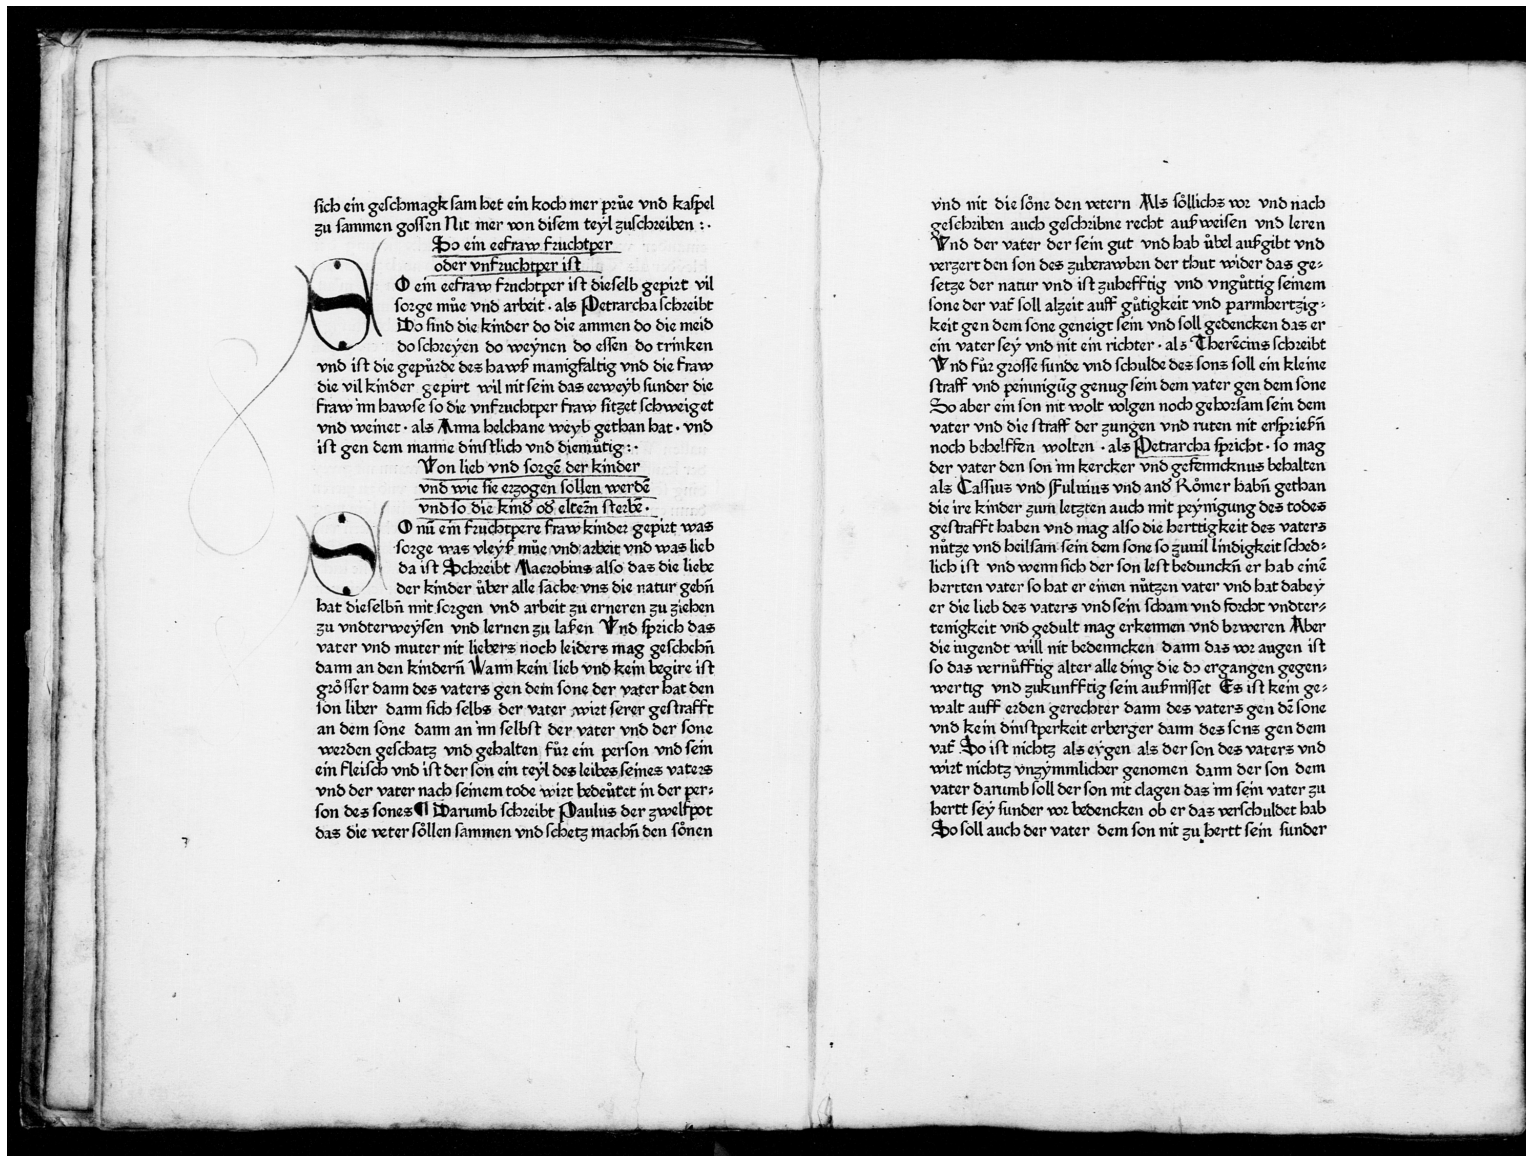 sich ein geschmagk sam het ein koch mer průe vnd kaspel
zu sammen gossen Nit mer von disem teyl zuschreiben :·
So ein eefraw fruchtper
oder vnfruchtper ist
SO ein eefraw fruchtper ist dieselb gepirt vil
sorge můe vnd arbeit · als Petrarcha schreibt
Do sind die kinder do die ammen do die meid
do schreyen do weynen do essen do trinken
vnd ist die gepůrde des hawß manigfaltig vnd die fraw
die vil kinder gepirt wil nit sein das eeweyb sunder die
fraw im hawse so die vnfruchtper fraw sitzet schweiget
vnd weinet · als Anna helchane weyb gethan hat · vnd
ist gen dem manne dinstlich vnd diemůtig :·
Von lieb vnd sorgē der kinder
vnd wie sie erzogen sollen werdē
vnd so die kind̄ od̄ elterñ sterbē ·
SO nū ein fruchtpere fraw kinder gepirt was
sorge was vleyß můe vnd arbeit vnd was lieb
da ist Schreibt Macrobius also das die liebe
der kinder ůber alle sache vns die natur gebñ
hat dieselbñ mit sorgen vnd arbeit zu erneren zu ziehen
zu vndterweysen vnd lernen zu laßen Vnd sprich das
vater vnd muter nit liebers noch leiders mag geschehñ
dann an den kinderñ Wann kein lieb vnd kein begire ist
grősser dann des vaters gen dem sone der vater hat den
son liber dann sich selbs der vater wirt serer gestrafft
an dem sone dann an im selbst der vater vnd der sone
werden geschatz vnd gehalten fůr ein person vnd sein
ein fleisch vnd ist der son ein teyl des leibes seines vaters
vnd der vater nach seinem tode wirt bedeůtet in der per⸗
son des sones ¶ Darumb schreibt Paulus der zwelfpot
das die veter sőllen sammen vnd schetz machñ den sőnen
vnd nit die sőne den vetern Als sőllichs vor vnd nach
geschriben auch geschribne recht außweisen vnd leren
Vnd der vater der sein gut vnd hab ůbel außgibt vnd
verzert den son des zuberawben der thut wider das ge⸗
setze der natur vnd ist zuhefftig vnd vngůttig seinem
sone der vat̄ soll alzeit auff gůtigkeit vnd parmhertzig⸗
keit gen dem sone geneigt sein vnd soll gedencken das er
ein vater sey vnd nit ein richter · als Therēcius schreibt
Vnd fůr grosse sunde vnd schulde des sons soll ein kleine
straff vnd peinnigūg genug sein dem vater gen dem sone
So aber ein son nit wolt volgen noch gehorsam sein dem
vater vnd die straff der zungen vnd ruten nit ersprießñ
noch behelffen wolten · als Petrarcha spricht · so mag
der vater den son im kercker vnd gefenncknus behalten
als Cassius vnd Fuluius vnd and̄ Rőmer habñ gethan
die ire kinder zum letzten auch mit peynigung des todes
gestrafft haben vnd mag also die herttigkeit des vaters
nůtze vnd heilsam sein dem sone so zuuil lindigkeit sched⸗
lich ist vnd wenn sich der son lest bedunckñ er hab einē
hertten vater so hat er einen nůtzen vater vnd hat dabey
er die lieb des vaters vnd sein scham vnd forcht vndter⸗
tenigkeit vnd gedult mag erkennen vnd bweren Aber
die iugendt will nit bedenncken dann das vor augen ist
so das vernůfftig alter alle ding die do ergangen gegen⸗
wertig vnd zukunfftig sein außmisset Es ist kein ge⸗
walt auff erden gerechter dann des vaters gen dē sone
vnd kein dinstperkeit erberger dann des sons gen dem
vat̄ So ist nichtz als eygen als der son des vaters vnd
wirt nichtz vnzymmlicher genomen dann der son dem
vater darumb soll der son nit clagen das im sein vater zu
hertt sey sunder vor bedencken ob er das verschuldet hab
So soll auch der vater dem son nit zu hertt sein sunder